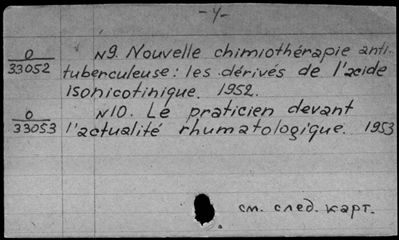 -4-
O
33052
N9. Nouvelle chimiothérapie anti-
tuberculeuse: les dérivés de l'acide
isonicotinique. 1952.
O
33053
N10. Le praticien devant
l'actualité rhumatologique. 1953
см. след. карт.